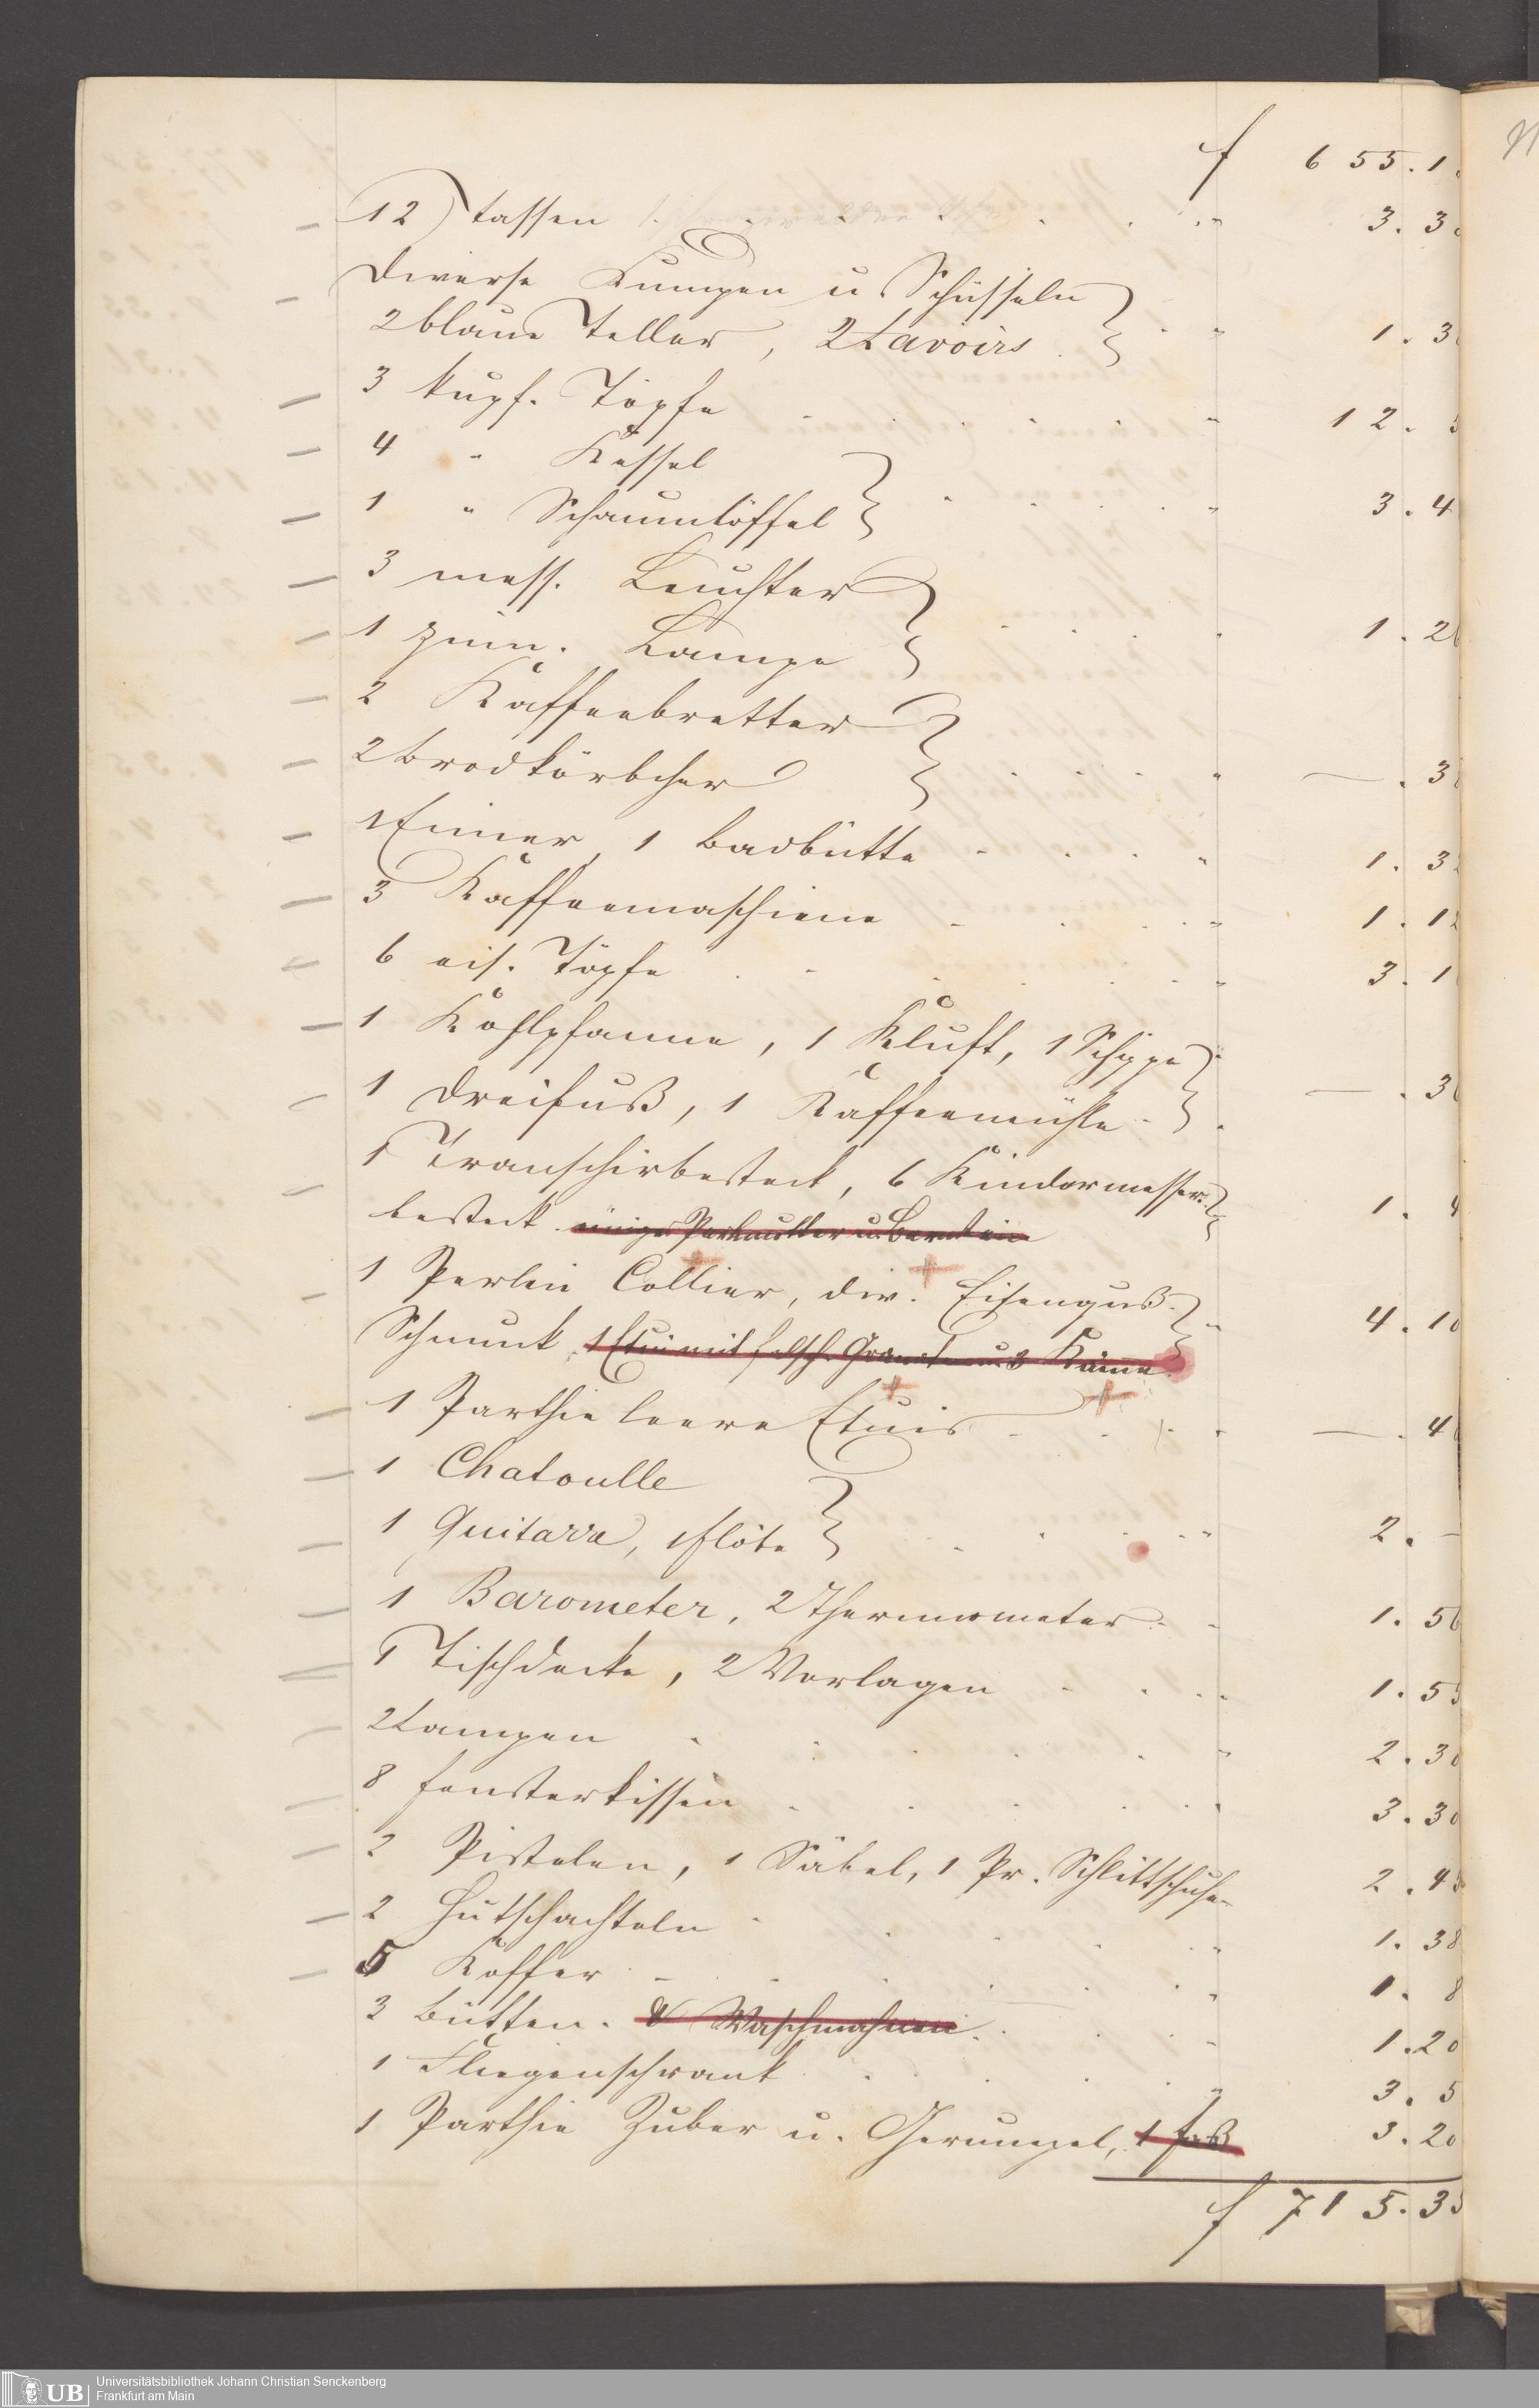 f 655.1
12 Tassen . . . . " 3.3
Diverse Kumpen u Schüsseln
2 blaue Teller, 2 Lavoirs . . " 1.3
3 kupf. Töpfe . . . . " 12.
4 " Kessel
1 " Schaumlöffel . . . . " 3.4
3 mess. Leuchter
1 zinn. Lampe . . . 1.2
2 Kaffeebretter
2 Brodkörbcher . . . " — .3
1 Eimer, 1 Badbütte . . . " 1.3
3 Kaffeemaschiene . . . " 1.12
6 eis. Töpfe . . . . " 3.1
1 Kohlpfanne, 1 Kluft, 1 Schippe
1 Dreifuß, 1 Kaffeemühle . — .3
1 Transchirbesteck, 6 Kindermesser
besteck einige Perlmutter u. Bernstein 1.4
1 Perlen Collier, div. Eisenguß
Schmuck, 1 Etui mit falsch. Granaten u 3 Kämme 4.10
1 Parthie leere Etuis . . . — .4
1 Chatoulle
1 Guitarre, 1 Flöte . . . " 2. —
1 Barometer, 2 Thermometer . . 1.56
1 Tischdecke, 2 Vorlagen . . . 1.55
2 Lampen . . . . " 2.30
8 Fensterkissen . . . . 3.30
2 Pistolen, 1 Säbel, 1 Pr. Schlittschuhe 2.45
2 Hutschachteln . . . " 1.38
5 Koffer . . . . " 1.8
3 Bütten. & Waschmahnen . . " 1.20
1 Fliegenschrank . . . " 3.5
1 Parthie Zuber u. Gerümpel, 1 Faß 3.20
f 715.35
UB
Universitätsbibliothek Johann Christian Senckenberg
Frankfurt am Main